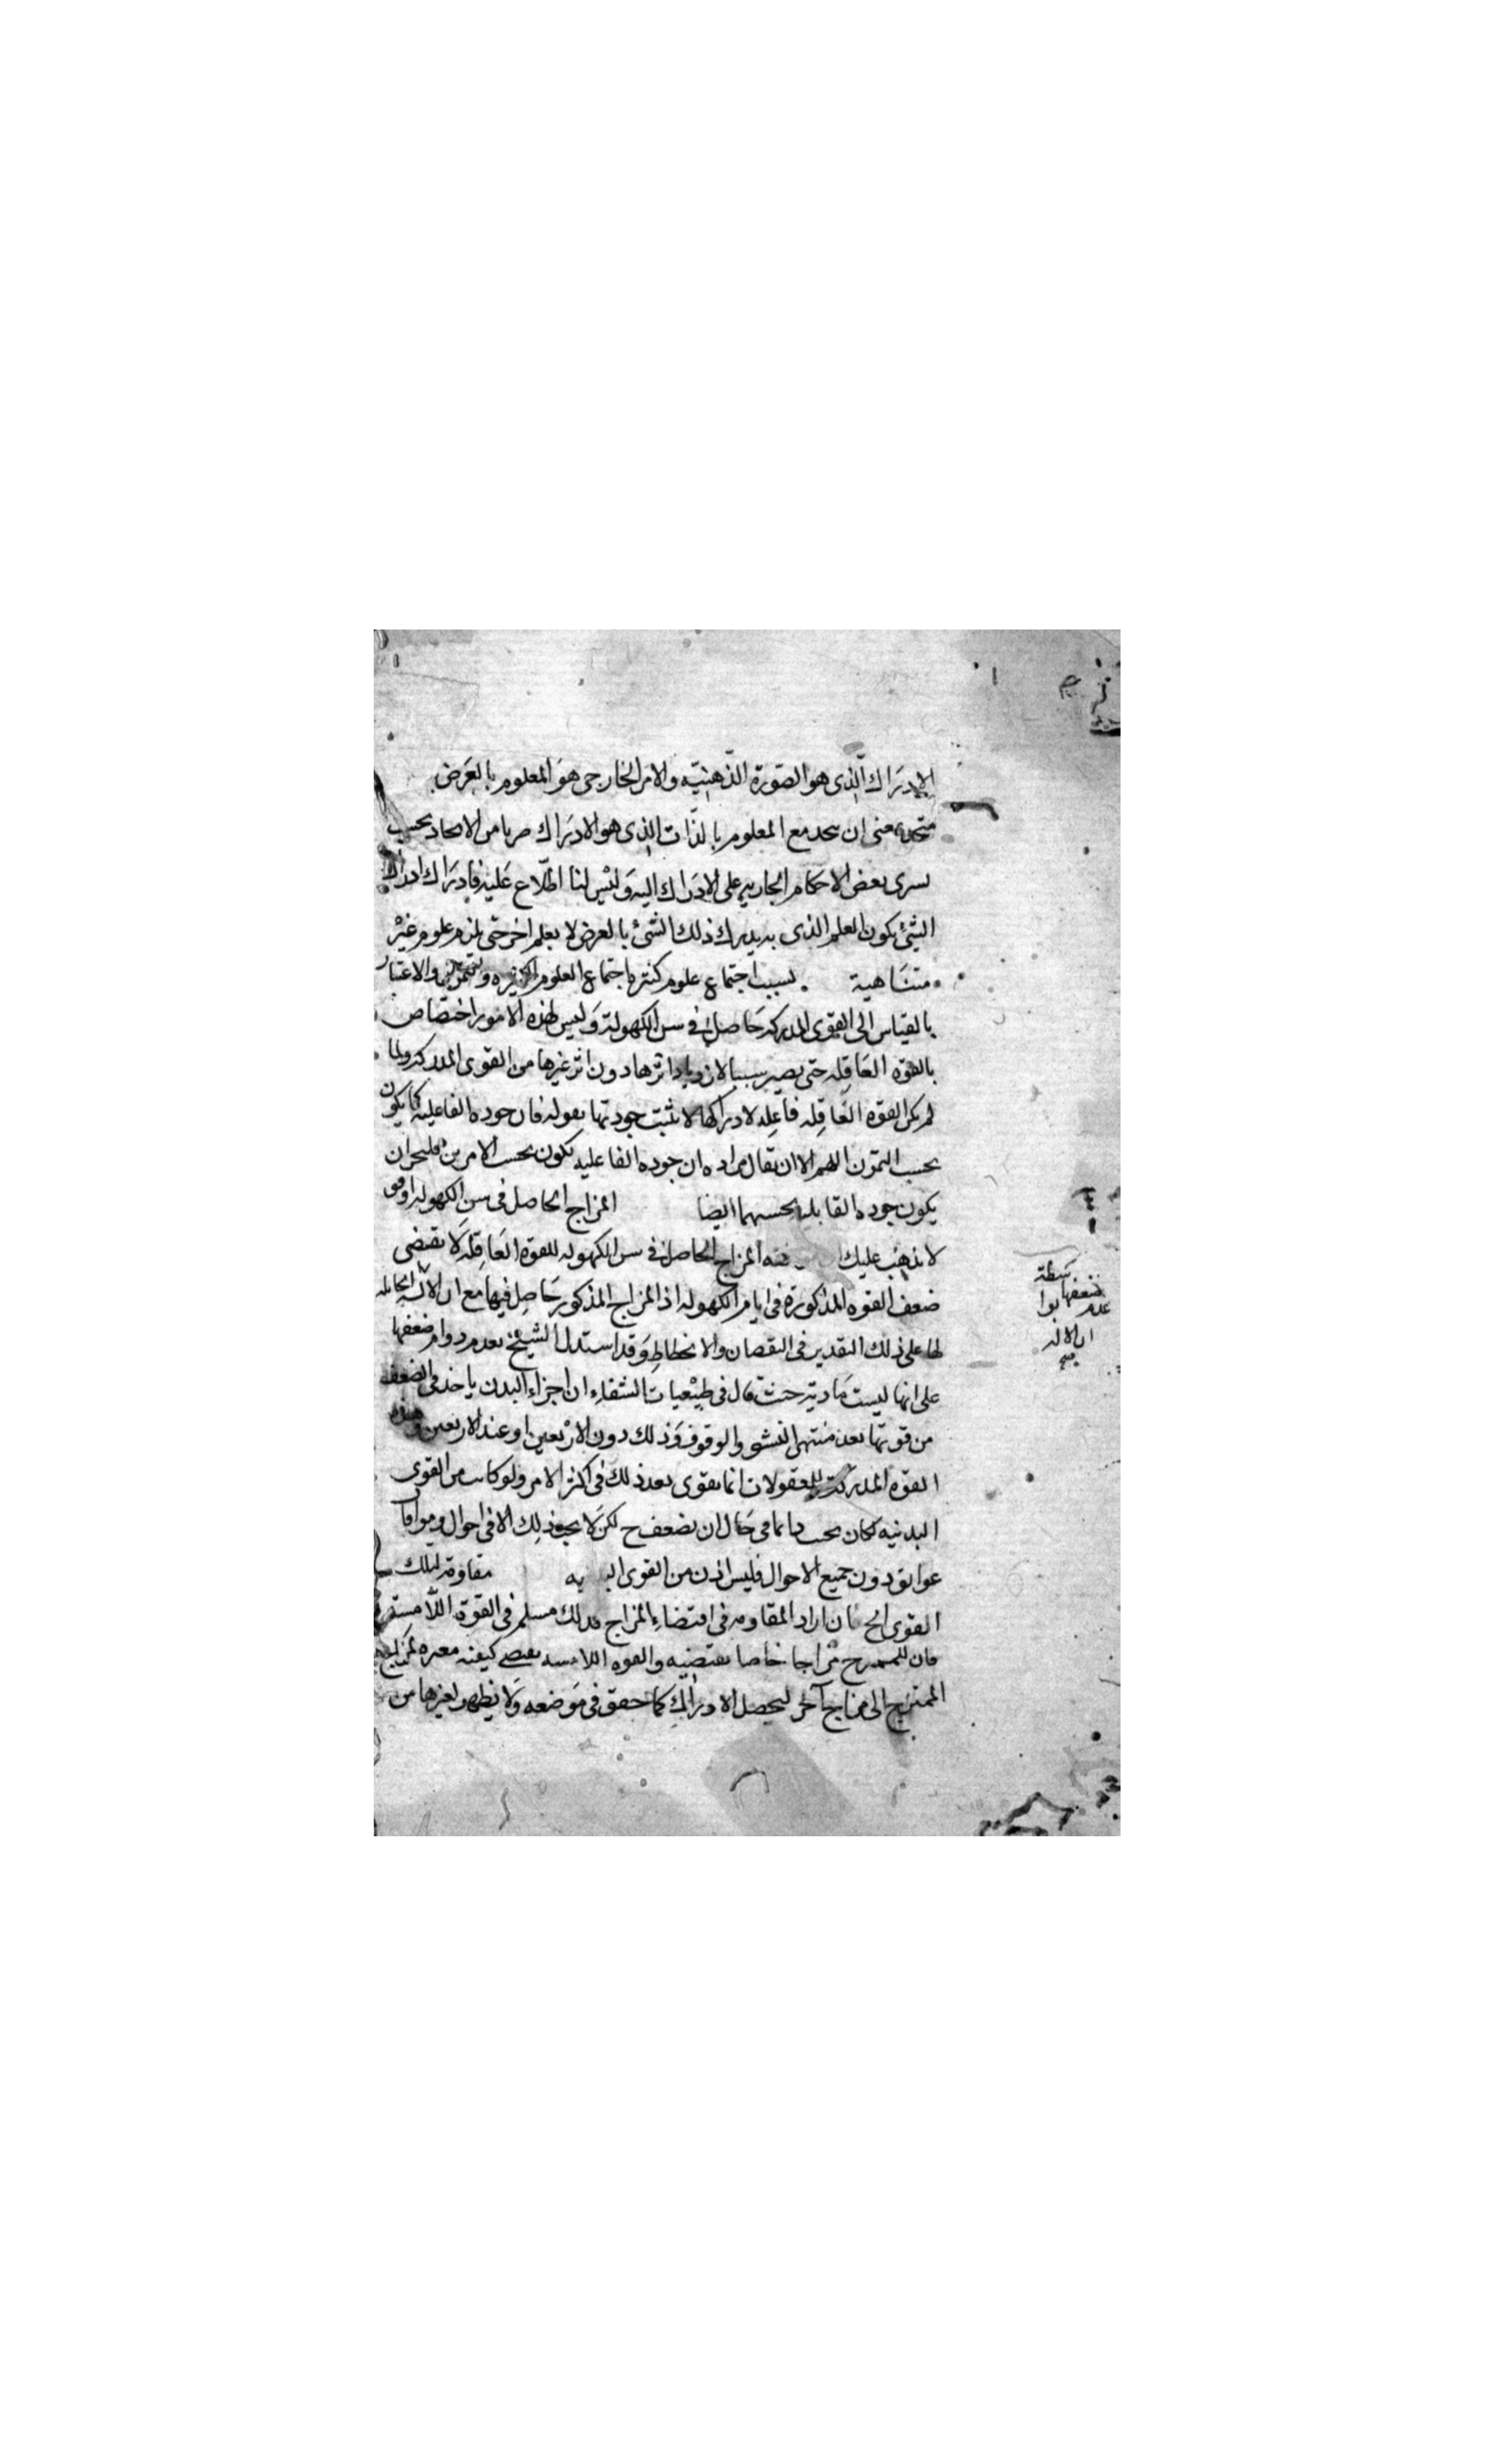 الإدراك الذى هو الصّورة الذّهنيّة والامر الخارجى هو المعلوم بالعرض
متحد بمعنى ان يتحد مع المعلوم بالذّات الذى هو الادراك ضربا من الاتحاد بحسبه
يسرى بعض الاحكام الجارية على الادراك اليه وليس لنا اطّلاع عليه فادراك ادراك
الشئ يكون العلم الذى به يدرك ذلك الشئ بالعرض لا بعلم اخر حتى يلزم علوم غير
متناهية بسبب اجتماع علوم كثيرة اجتماع العلوم الكثيره والاعتبار
بالقياس الى القوى المدركة حاصل فى سن الكهولة وليس لهذه الامور اختصاص
بالقوه العاقله حتى يصير سببا لازدياد اثرها دون اثر غيرها من القوى المدركه ولما
لم يكن القوه العاقله فاعله لادراكها لا تثبت جودتها بقوله فان جوده الفاعليه كما يكون
بحسب التمرّن اللهم الا ان يقال مراده ان جوده الفاعليه يكون بحسب الامرين فليجز ان
يكون جوده القابليه بحسبهما ايضا المزاج الحاصل فى سن الكهوله اوفق
لا يذهب عليك المزاج الحاصل فى سن الكهوله للقوه العاقله لا يقتضى
ضعف القوه المذكورة فى ايام الكهوله اذ المزاج المذكور حاصل فيها مع ان الآلة الحامله
لها على ذلك التقدير فى النقصان والانحطاط وقد استدل الشيخ بعدم دوام ضعفها
على انها ليست مادية حيث قال فى طبيعيات الشفاء ان اجزاء البدن ياخذ فى الضعف
من قوتها بعد منتهى النشو والوقوف وذلك دون الاربعين او عند الاربعين وهذه
القوه المدركة للمعقولات انما يقوى بعد ذلك فى اكثر الامر ولو كانت من القوى
البدنيه لكان يجب دائما فى كل حال ان يضعف ح لكن لا يجب ذلك الا فى احوال وموافاة
عوائق دون جميع الاحوال فليس اذن من القوى البدنيه مقاومة لتلك
القوى الخ ان اراد المقاومه فى اقتضاء المزاج فذلك مسلم فى القوة اللامسة
فان للممتزج مزاجا خاصا يقتضيه والقوه اللامسه يقتضى كيفيه مغيره لمزاج
الممتزج الى مزاج آخر ليحصل الادراك كما حقق فى موضعه ولا يظهر لغيرها من
ضعفها
عدم